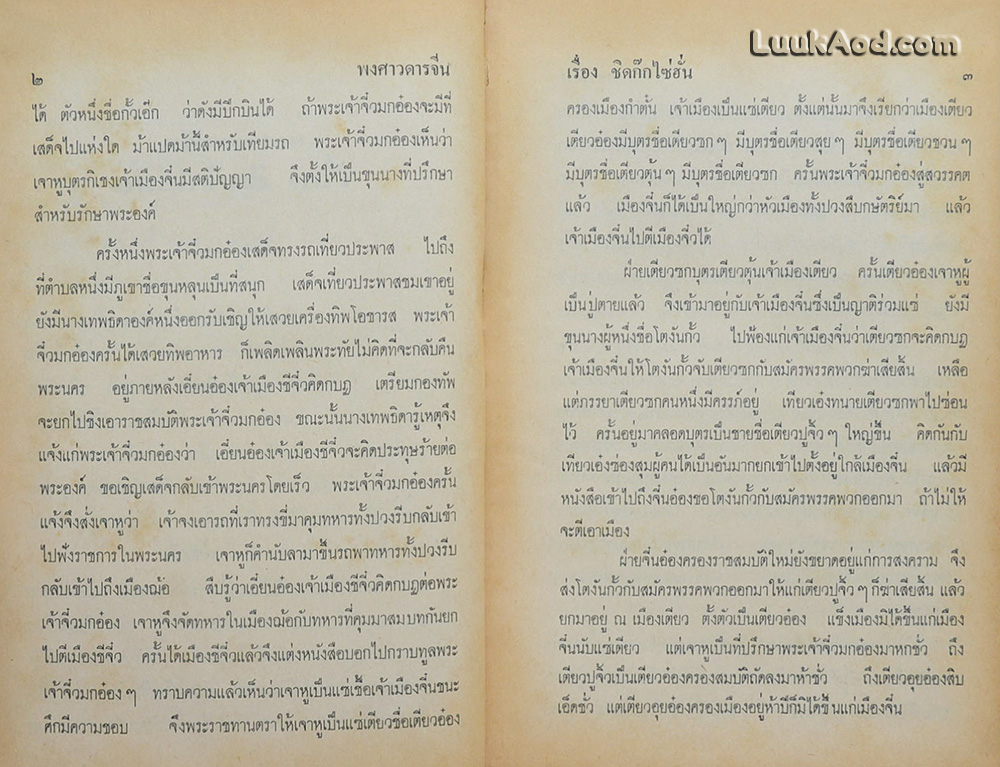 LuukAod.com
๒ พงศาวดารจีน
ได้ ตัวหนึ่งชื่อกั้วเอ๊ก ว่าดังมีปีกบินได้ ถ้าพระเจ้าจิ๋วมกอ๋องจะมีที่
เสด็จไปแห่งใด ม้าแปดม้านี้สำหรับเทียมรถ พระเจ้าจิ๋วมกอ๋องเห็นว่า
เจาหูบุตรกิเชงเจ้าเมืองจิ๋นมีสติปัญญา จึงตั้งให้เป็นขุนนางที่ปรึกษา
สำหรับรักษาพระองค์
ครั้งหนึ่งพระเจ้าจิ๋วมกอ๋องเสด็จทรงรถเที่ยวประพาส ไปถึง
ที่ตำบลหนึ่งมีภูเขาชื่อขุนหลุนเป็นที่สนุก เสด็จเที่ยวประพาสชมเขาอยู่
ยังมีนางเทพธิดาองค์หนึ่งออกรับเชิญให้เสวยเครื่องทิพโอชารส พระเจ้า
จิ๋วมกอ๋องครั้นได้เสวยทิพอาหาร ก็เพลิดเพลินพระทัยไม่คิดที่จะกลับคืน
พระนคร อยู่ภายหลังเอี๋ยนอ๋องเจ้าเมืองชีจิ๋วคิดกบฏ เตรียมกองทัพ
จะยกไปชิงเอาราชสมบัติพระเจ้าจิ๋วมกอ๋อง ขณะนั้นนางเทพธิดารู้เหตุจึง
แจ้งแก่พระเจ้าจิ๋วมกอ๋องว่า เอี๋ยนอ๋องเจ้าเมืองชีจิ๋วจะคิดประทุษร้ายต่อ
พระองค์ ขอเชิญเสด็จกลับเข้าพระนครโดยเร็ว พระเจ้าจิ๋วมกอ๋องครั้น
แจ้งจึงสั่งเจาหูว่า เจ้าจงเอารถที่เราทรงขี่มาคุมทหารทั้งปวงรีบกลับเข้า
ไปฟังราชการในพระนคร เจาหูก็คำนับลามาขึ้นรถพาทหารทั้งปวงรีบ
กลับเข้าไปถึงเมืองฌ้อ สืบรู้ว่าเอี๋ยนอ๋องเจ้าเมืองชีจิ๋วคิดกบฏต่อพระ
เจ้าจิ๋วมกอ๋อง เจาหูจึงจัดทหารในเมืองฌ้อกับทหารที่คุมมาสมบทกันยก
ไปตีเมืองชีจิ๋ว ครั้นได้เมืองชีจิ๋วแล้วจึงแต่งหนังสือบอกไปกราบทูลพระ
เจ้าจิ๋วมกอ๋อง ๆ ทราบความแล้วเห็นว่าเจาหูเป็นแซ่เชื้อเจ้าเมืองจิ๋นชนะ
ศึกมีความชอบ จึงพระราชทานตราให้เจาหูเป็นแซ่เตียวชื่อเตียวอ๋อง
เรื่อง ชิดก๊กไซ่ฮั่น ๓
ครองเมืองกำตั๋น เจ้าเมืองเป็นแซ่เตียว ตั้งแต่นั้นมาจึงเรียกว่าเมืองเตียว
เตียวอ๋องมีบุตรชื่อเตียวซก ๆ มีบุตรชื่อเตียวสุย ๆ มีบุตรชื่อเตียวชวน ๆ
มีบุตรชื่อเตียวตุ้น ๆ มีบุตรชื่อเตียวซก ครั้นพระเจ้าจิ๋วมกอ๋องสู่สวรรคต
แล้ว เมืองจิ๋นก็ได้เป็นใหญ่กว่าหัวเมืองทั้งปวงสืบกษัตริย์มา แล้ว
เจ้าเมืองจิ๋นไปตีเมืองจิ๋วได้
ฝ่ายเตียวซกบุตรเตียวตุ้นเจ้าเมืองเตียว ครั้นเตียวอ๋องเจาหูผู้
เป็นปู่ตายแล้ว จึงเข้ามาอยู่กับเจ้าเมืองจิ๋นซึ่งเป็นญาติร่วมแซ่ ยังมี
ขุนนางผู้หนึ่งชื่อโตงันกั้ว ไปฟ้องแก่เจ้าเมืองจิ๋นว่าเตียวซกจะคิดกบฏ
เจ้าเมืองจิ๋นให้โตงันกั้วจับเตียวซกกับสมัครพรรคพวกฆ่าเสียสิ้น เหลือ
แต่ภรรยาเตียวซกคนหนึ่งมีครรภ์อยู่ เทียวเอ๋งทนายเตียวซกพาไปซ่อน
ไว้ ครั้นอยู่มาคลอดบุตรเป็นชายชื่อเตียวปูจิ๋ว ๆ ใหญ่ขึ้น คิดกันกับ
เทียวเอ๋งซ่องสุมผู้คนได้เป็นอันมากยกเข้าไปตั้งอยู่ใกล้เมืองจิ๋น แล้วมี
หนังสือเข้าไปถึงจิ๋นอ๋องขอโตงันกั้วกับสมัครพรรคพวกออกมา ถ้าไม่ให้
จะตีเอาเมือง
ฝ่ายจิ๋นอ๋องครองราชสมบัติใหม่ยังขยาดอยู่แก่การสงคราม จึง
ส่งโตงันกั้วกับสมัครพรรคพวกออกมาให้แก่เตียวปูจิ๋ว ๆ ก็ฆ่าเสียสิ้น แล้ว
ยกมาอยู่ ณ เมืองเตียว ตั้งตัวเป็นเตียวอ๋อง แข็งเมืองมิได้ขึ้นแก่เมือง
จิ๋นนับแซ่เตียว แต่เจาหูเป็นที่ปรึกษาพระเจ้าจิ๋วมกอ๋องมาหกชั่ว ถึง
เตียวปูจิ๋วเป็นเตียวอ๋องครองสมบัติถัดลงมาห้าชั่ว ถึงเตียวอุยอ๋องสิบ
เอ็ดชั่ว แต่เตียวอุยอ๋องครองเมืองอยู่ห้าปีก็มิได้ขึ้นแก่เมืองจิ๋น